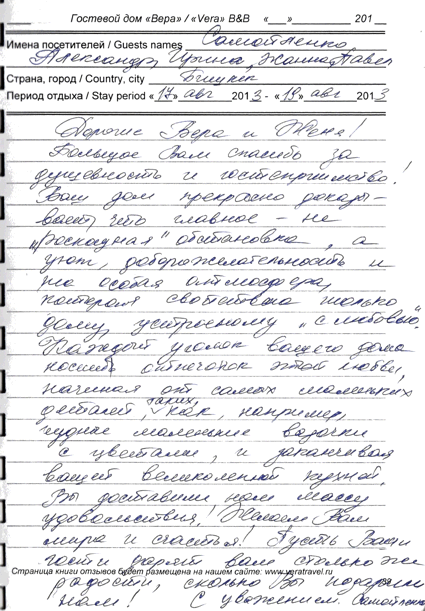 Гостевой дом «Вера» / «Vera» B&B «___» ____________ 201__
Имена посетителей / Guests names Самойленко
Александр, Ирина, Жанна, Павел
Страна, город / Country, city Бишкек
Период отдыха / Stay period «17» авг 2013 - «19» авг 2013
Дорогие Вера и Женя!
Большое Вам спасибо за
душевность и гостеприимство!
Ваш дом прекрасно доказы-
вает, что главное - не
"роскошная" обстановка, а
уют, доброжелательность и
та особая атмосфера,
которая свойственна только
дому, устроенному "с любовью".
Каждый уголок вашего дома
носит отпечаток этой любви,
начиная от самых маленьких
деталей, таких, как, например,
чудные маленькие вазочки
с цветами, и заканчивая
вашей великолепной кухней.
Вы доставили нам массу
удовольствия! Желаем Вам
мира и счастья! Пусть Ваши
гости дарят вам столько же
Страница книги отзывов будет размещена на нашем сайте: www.veratravel.ru
радости, сколько Вы подарили
нам! С уважением, Самойленко